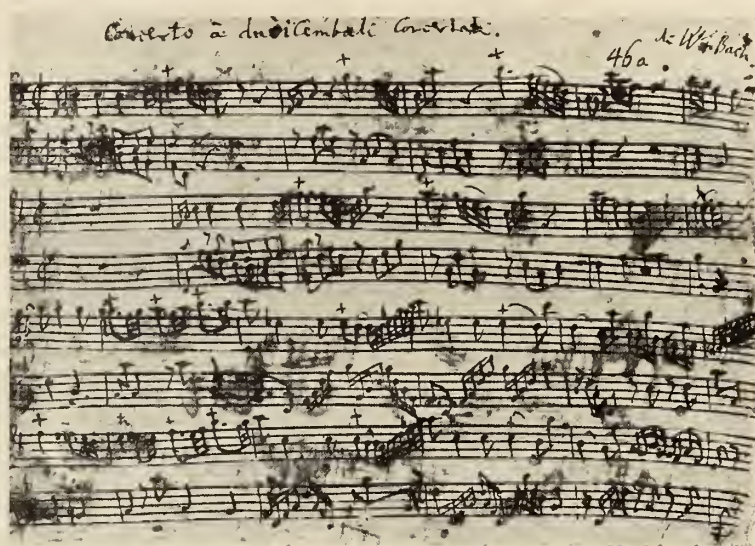 Concerto à duoi Cembali Concertati.
46a di W. F. Bach.